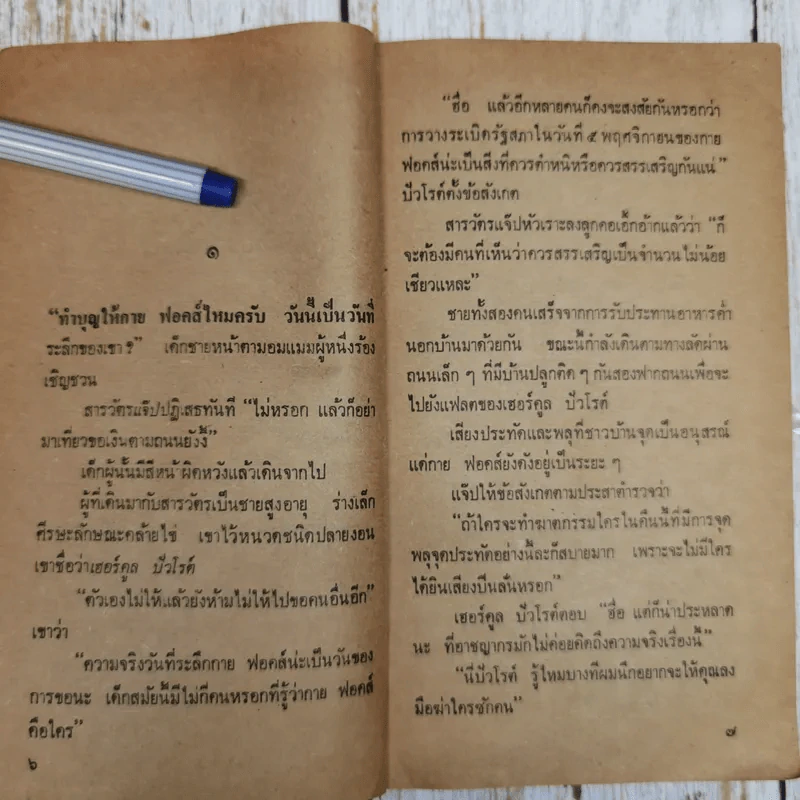 ๑
“ทำบุญให้กาย ฟอคส์ไหมครับ วันนี้เป็นวันที่
ระลึกของเขา ร” เด็กชายหน้าตามอมแมมผู้หนึ่งร้อง
เชิญชวน
สารวัตรแจ๊ปปฏิเสธทันที “ไม่หรอก แล้วก็อย่า
มาเที่ยวขอเงินตามถนนยังงี้”
เด็กผู้นั้นมีสีหน้าผิดหวังแล้วเดินจากไป
ผู้ที่เดินมากับสารวัตรเป็นชายสูงอายุ ร่างเล็ก
ศีรษะลักษณะคล้ายไข่ เขาไว้หนวดชนิดปลายงอน
เขาชื่อว่าเฮอร์คูล ปัวโรต์
“ตัวเองไม่ให้แล้วยังห้ามไม่ให้ไปขอคนอื่นอีก”
เขาว่า
“ความจริงวันที่ระลึกกาย ฟอคส์น่ะเป็นวันของ
การขอนะ เด็กสมัยนี้มีไม่กี่คนหรอกที่รู้ว่ากาย ฟอคส์
คือใคร”
๖
“ฮื่อ แล้วอีกหลายคนก็คงจะสงสัยกันหรอกว่า
การวางระเบิดรัฐสภาในวันที่ ๕ พฤศจิกายนของกาย
ฟอคส์น่ะเป็นสิ่งที่ควรตำหนิหรือควรสรรเสริญกันแน่”
ปัวโรต์ตั้งข้อสังเกต
สารวัตรแจ๊ปหัวเราะลงลูกคอเอิ๊กอ๊ากแล้วว่า “ก็
จะต้องมีคนที่เห็นว่าควรสรรเสริญเป็นจำนวนไม่น้อย
เชียวแหละ”
ชายทั้งสองคนเสร็จจากการรับประทานอาหารค่ำ
นอกบ้านมาด้วยกัน ขณะนี้กำลังเดินตามทางลัดผ่าน
ถนนเล็ก ๆ ที่มีบ้านปลูกติด ๆ กันสองฟากถนนเพื่อจะ
ไปยังแฟลตของเฮอร์คูล ปัวโรต์
เสียงประทัดและพลุที่ชาวบ้านจุดเป็นอนุสรณ์
แด่กาย ฟอคส์ยังดังอยู่เป็นระยะ ๆ
แจ๊ปให้ข้อสังเกตตามประสาตำรวจว่า
“ถ้าใครจะทำฆาตกรรมใครในคืนนี้ที่มีการจุด
พลุจุดประทัดอย่างนี้ละก็สบายมาก เพราะจะไม่มีใคร
ได้ยินเสียงปืนลั่นหรอก”
เฮอร์คูล ปัวโรต์ตอบ “ฮื่อ แต่ก็น่าประหลาด
นะ ที่อาชญากรมักไม่ค่อยคิดถึงความจริงเรื่องนี้”
“นี่ปัวโรต์ รู้ไหมบางทีผมนึกอยากจะให้คุณลง
มือฆ่าใครซักคน”
๗